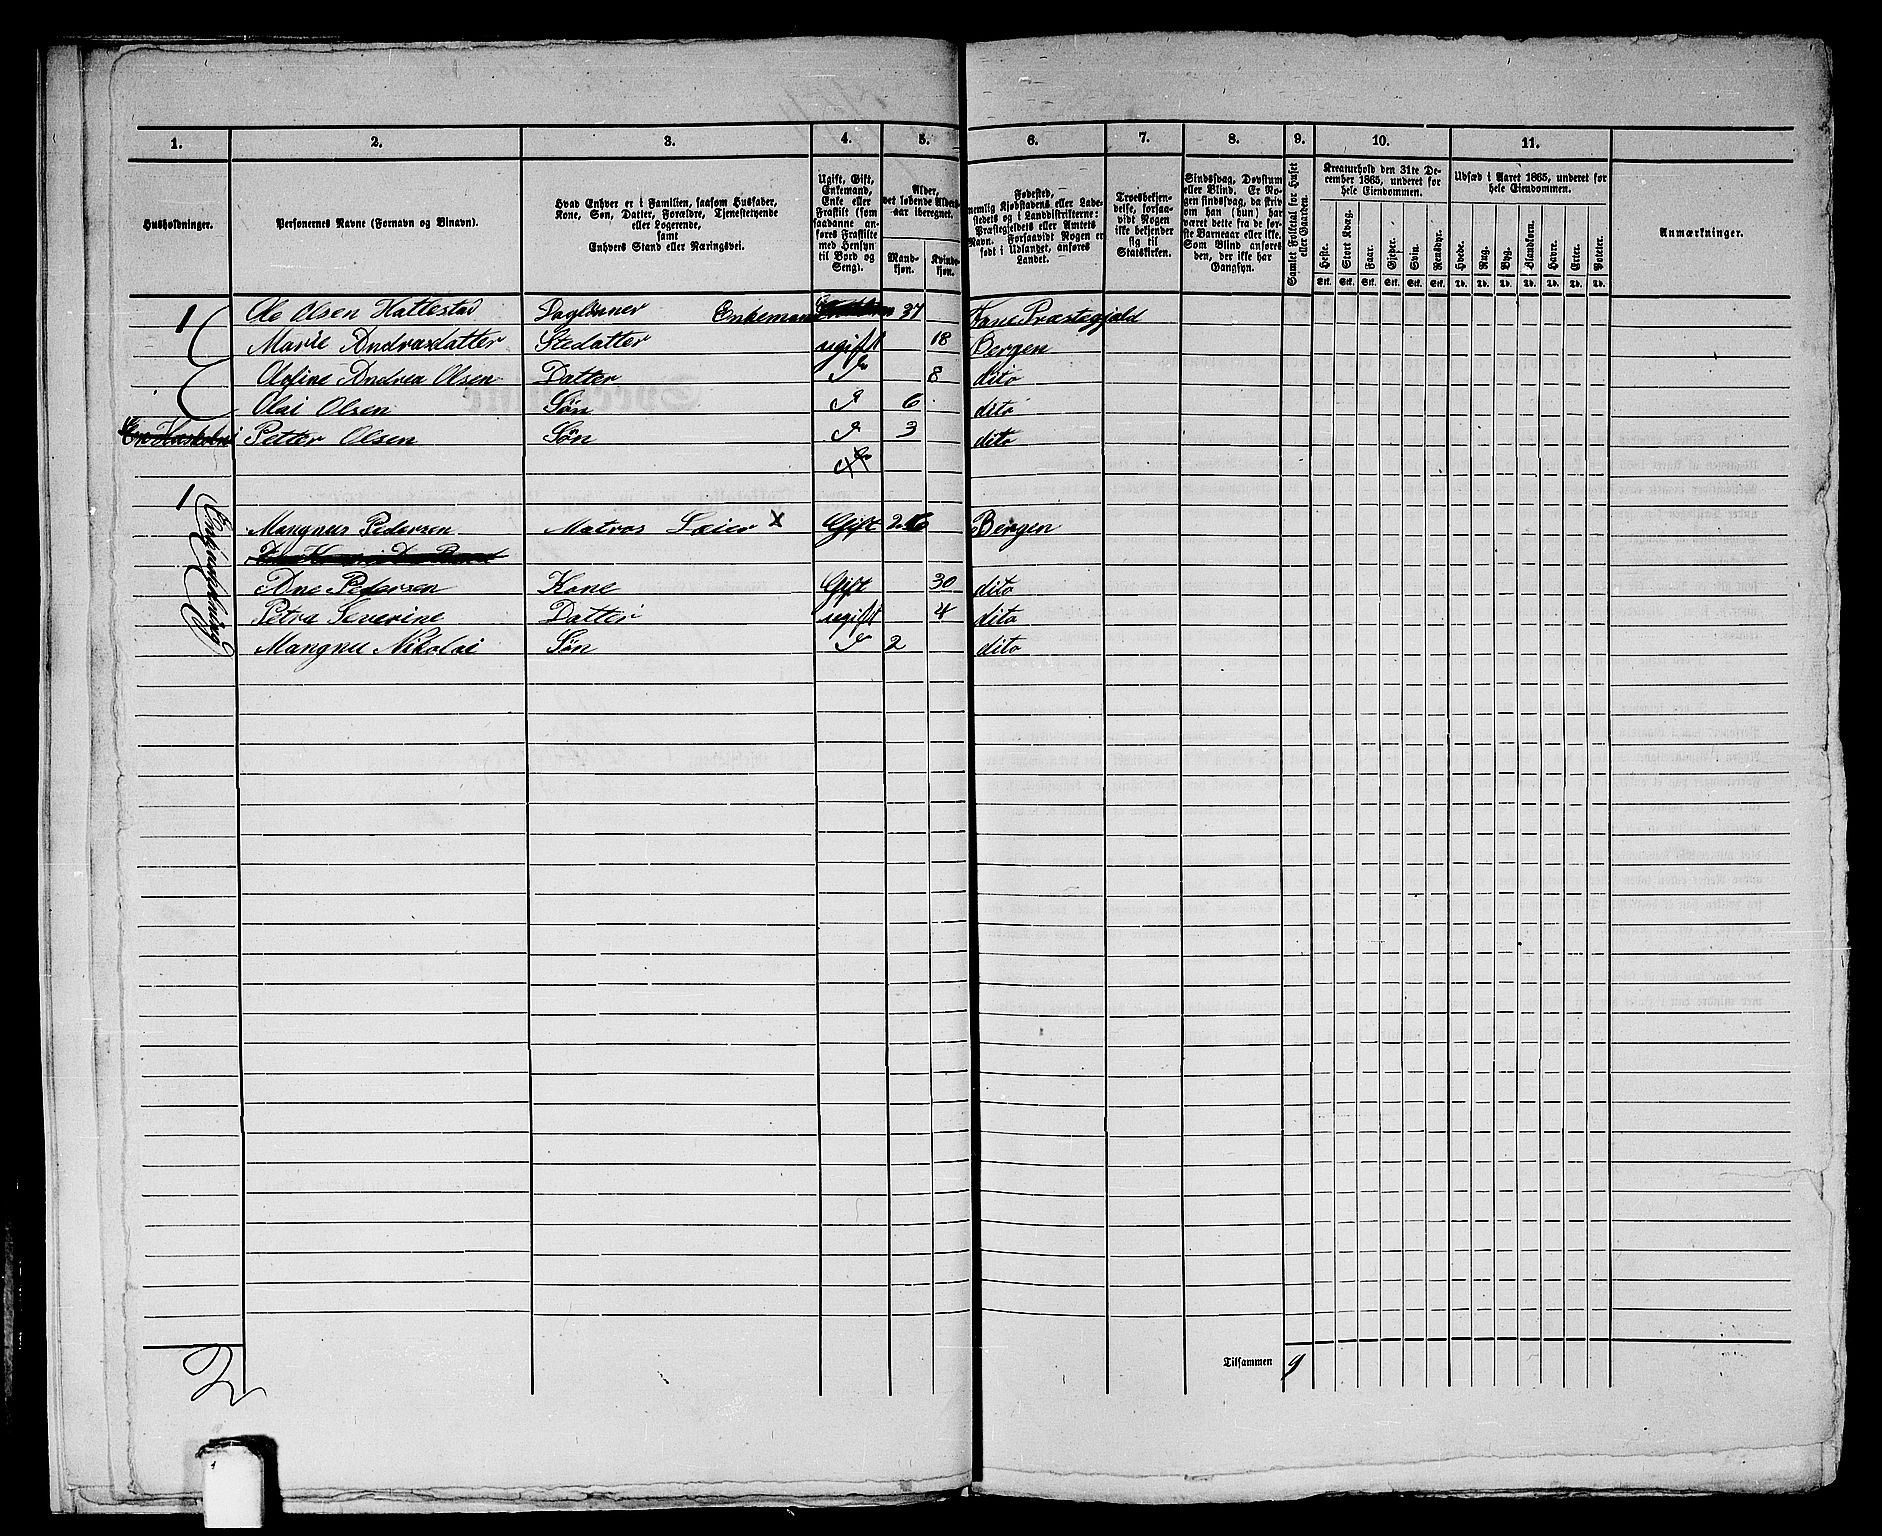 1. 2. 3. 4. 5. 6. 7. 8. 9. 10. 11.
Husholdninger.
Personernes Navne (Fornavn og Binavn).
Hvad Enhver er i Familien, saasom Husfader,
Kone, Søn, Datter, Forældre, Tjenestetyende
eller Logerende,
samt
Enhvers Stand eller Næringsvei.
Ugift, Gift,
Enkemand,
Enke eller
Fraskilt (som
saadanne an-
føres Fraskilte
med Hensyn
til Bord og
Seng).
Alder,
det løbende Alders-
aar iberegnet.
Mand-
kjøn.
Kvinde-
kjøn.
Fødested,
nemlig Kjøbstadens eller Lade-
stedets og i Landdistrikterne:
Præstegjeldets eller Amtets
Navn. Forsaavidt Nogen er
født i Udlandet, anføres
Landet.
Troesbekjen-
delse, forsaa-
vidt Nogen
ikke bekjender
sig til
Statskirken.
Sindssvag, Døvstum
eller Blind. Er No-
gen sindssvag, da skriv
om han (hun) har
været dette fra de før-
ste Barneaar eller ikke.
Som Blind anføres
den, der ikke har
Gangsyn.
Samlet Folketal for Huset
eller Gaarden.
Kreaturhold den 31te De-
cember 1865, underet for
hele Eiendommen.
Heste. Stort Kvæg. Faar. Gjeder. Svin. Rensdyr.
Stk. Stk. Stk. Stk. Stk. Stk.
Udsæd i Aaret 1865, underet for
hele Eiendommen.
Hvede. Rug. Byg. Blandkorn. Havre. Erter. Poteter.
Td. Td. Td. Td. Td. Td. Td.
Anmærkninger.
1 Ole Olsen Hattestad Daglønner Enkeman 37 Fane Præstegjald
Marie Andreasdatter Stedatter ugift 18 Bergen
Olefine Andrea Olsen Datter 8 dito
Olai Olsen Søn 6 dito
Petter Olsen Søn 3 dito
1 Mangnus Pedersen Matros Leier x Gift 26 Bergen
Ane Pedersen Kone Gift 30 dito
Petra Severine Datter ugift 4 dito
Mangnus Nikolai Søn 2 dito
Tilsammen 9
2